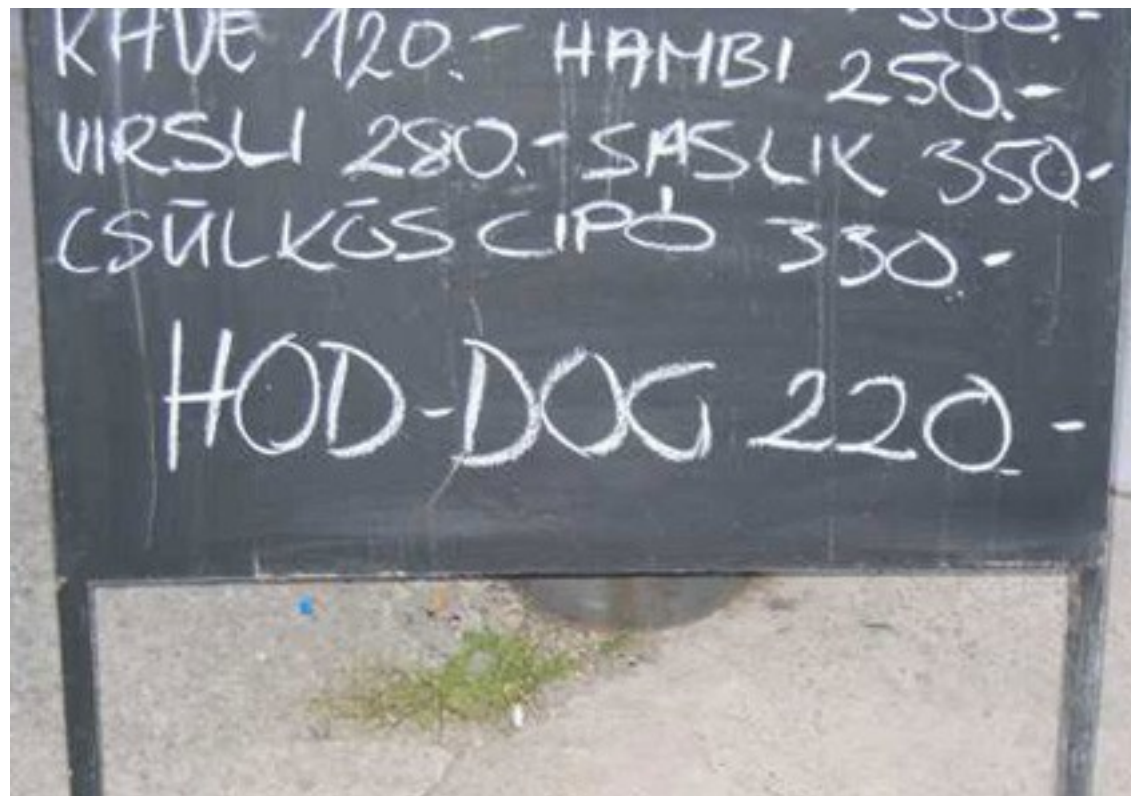 300.-
KÁVÉ 120.- HAMBI 250.-
VIRSLI 280.- SASLIK 350.-
CSŪLKŌS CIPÓ 330.-
HOD-DOG 220.-